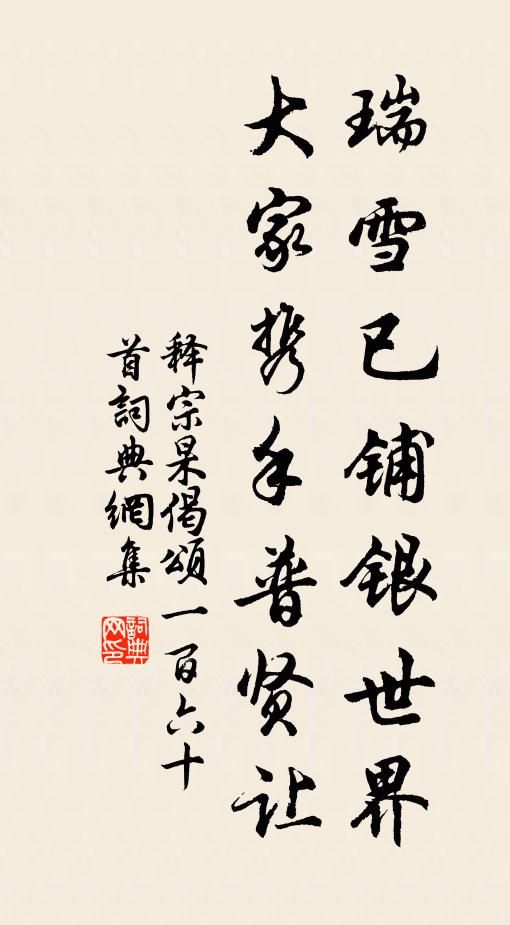 瑞雪已铺银世界
大家携手普贤让
释宗杲偈頌一百六十
首詞典網集
詞典网印